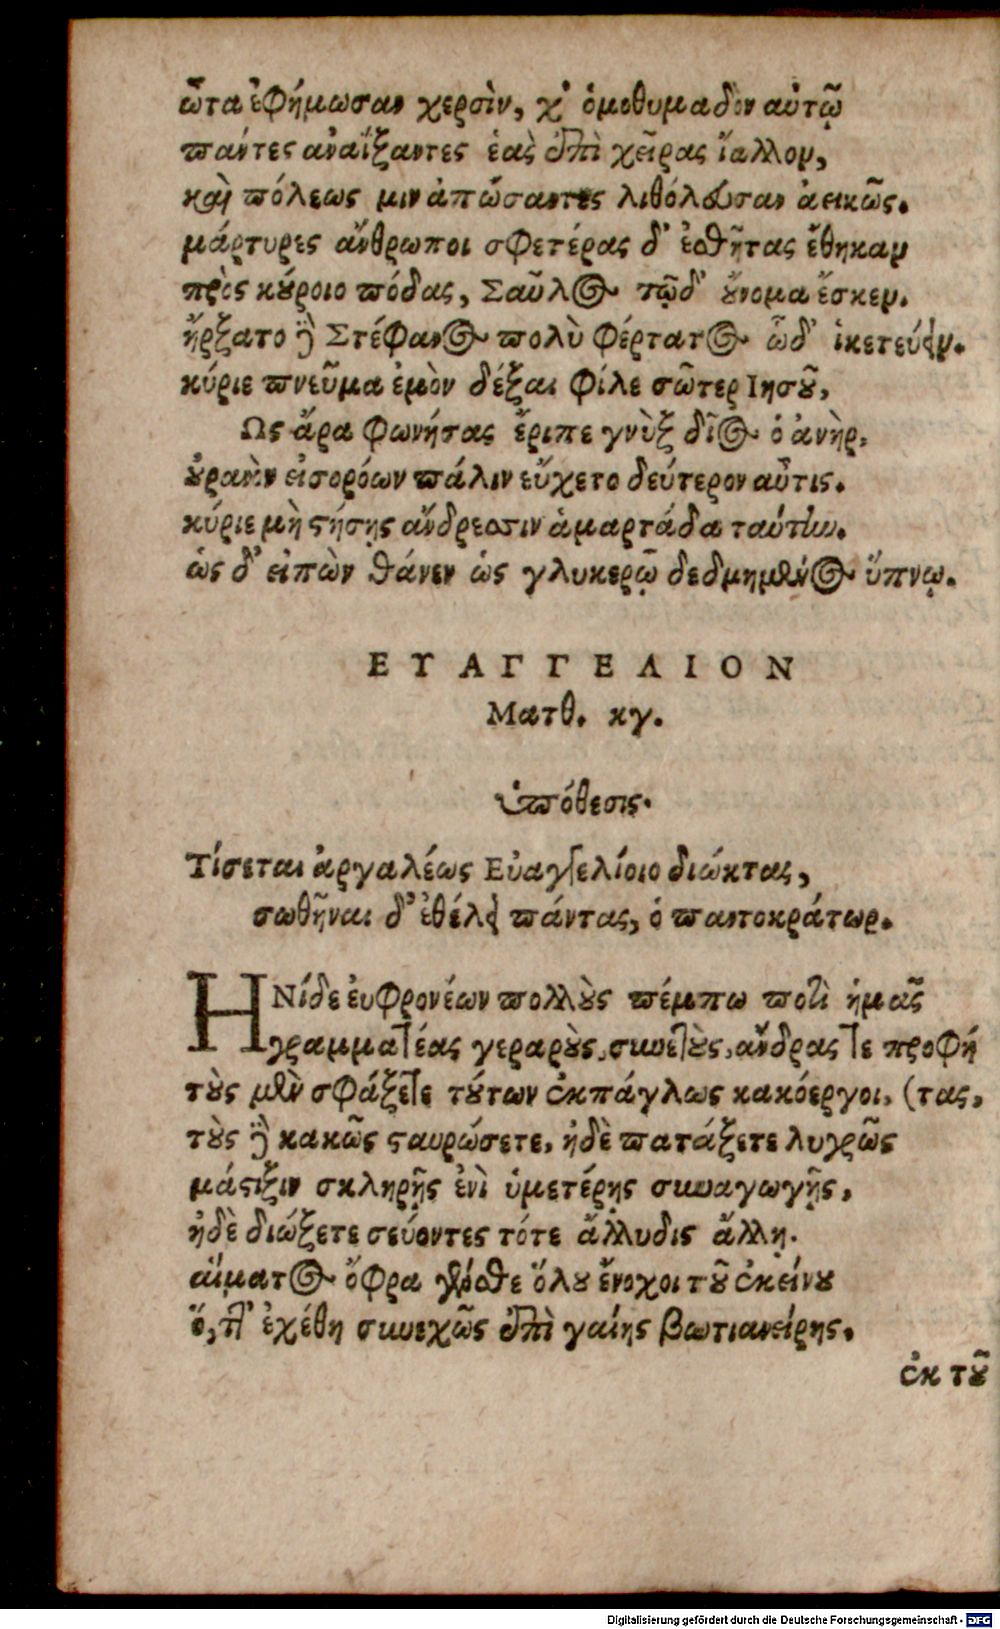 ὦτα ἐφήμωσαν χερσὶν, χ᾽ ὁμοθυμαδὸν αὐτῷ
πάντες ἀναΐξαντες ἑὰς ἐπὶ χεῖρας ἴαλλον,
καὶ πόλεως μιν ἀπώσαντες λιθόλευσαν ἀεικῶς.
μάρτυρες ἄνθρωποι σφετέρας δ᾽ ἐσθῆτας ἔθηκαν
πρὸς κούροιο πόδας, Σαῦλος τῷδ᾽ οὔνομα ἔσκεν.
ἤρξατο δὲ Στέφανος πολὺ φέρτατος ὧδ᾽ ἱκετεύειν.
κύριε πνεῦμα ἐμὸν δέξαι φίλε σῶτερ Ιησοῦ,
Ως ἄρα φωνήσας ἔριπε γνὺξ δῖος ὁ ἀνὴρ,
οὐρανὸν εἰσορόων πάλιν εὔχετο δεύτερον αὖτις.
κύριε μὴ στήσῃς ἄνδρεσσιν ἁμαρτάδα ταύτην.
ὡς δ᾽ εἰπὼν θάνεν ὡς γλυκερῷ δεδμημένος ὕπνῳ.
ΕΥΑΓΓΕΛΙΟΝ
Ματθ. κγ.
ὑπόθεσις.
Τίσεται ἀργαλέως Εὐαγγελίοιο διώκτας,
σωθῆναι δ᾽ ἐθέλει πάντας, ὁ παντοκράτωρ.
ΗΝίδε ἐυφρονέων πολλοὺς πέμπω ποτὶ ἡμᾶς
γραμματέας γεραροὺς, συνετοὺς, ἄνδρας τε προφή
τοὺς μὲν σφάξετε τούτων ἐκπάγλως κακόεργοι, (τας,
τοὺς δὲ κακῶς σταυρώσετε, ἠδὲ πατάξετε λυγρῶς
μάστιξιν σκληρῇς ἐνὶ ὑμετέρῃς συναγωγῇς,
ἠδὲ διώξετε σεύοντες τότε ἄλλυδις ἄλλῃ.
αἵματος ὄφρα γένοισθε ὅλου ἔνοχοι τοῦ ἐκείνου
ὅ,τι᾽ ἐχέθη συνεχῶς ἐπὶ γαίης βωτιανείρης.
ἐκ τοῦ
Digitalisierung gefördert durch die Deutsche Forschungsgemeinschaft - DFG